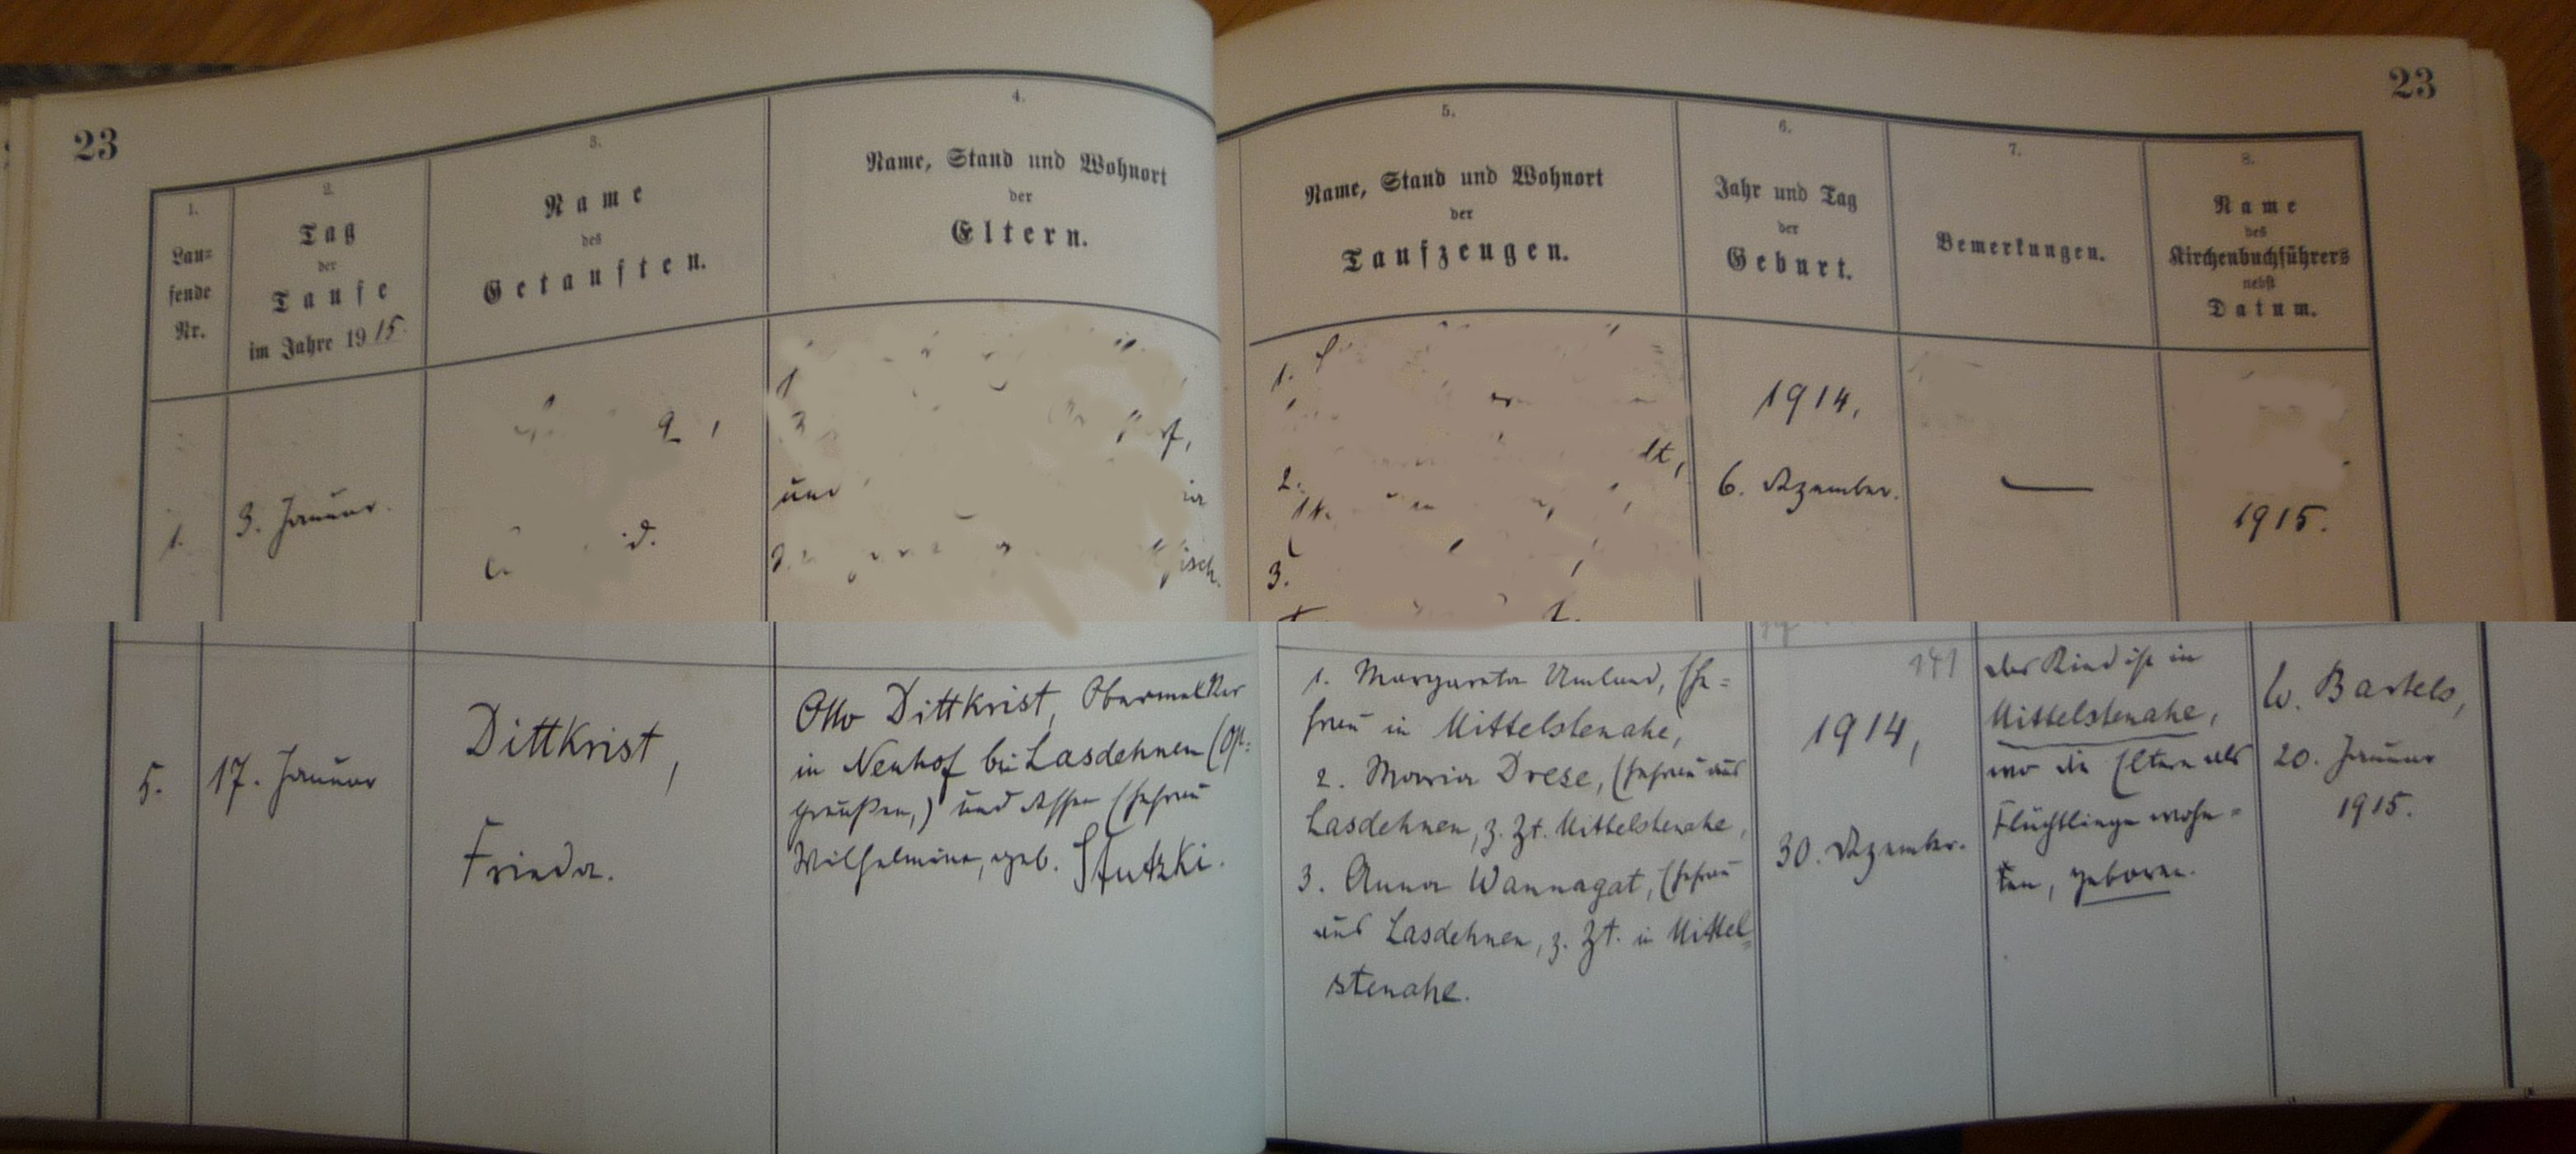 23
23
1.
Lau=
fende
Nr.
2.
Tag
der
Taufe
im Jahre 1915.
3.
Name
des
Getauften.
4.
Name, Stand und Wohnort
der
Eltern.
5.
Name, Stand und Wohnort
der
Taufzeugen.
6.
Jahr und Tag
der
Geburt.
7.
Bemerkungen.
8.
Name
des
Kirchenbuchführers
nebst
Datum.
1.
3. Januar.
und
1.
2.
3.
1914,
6. Dezember.
—
1915.
5.
17. Januar
Dittkrist,
Frieda.
Otto Dittkrist, Obermelker
in Neuhof bei Lasdehnen (Ost=
preußen,) und dessen Ehefrau
Wilhelmine, geb. Stutzki.
1. Margareta Umland, Ehe=
frau in Mittelstenahe,
2. Maria Drese, Ehefrau aus
Lasdehnen, z. Zt. Mittelstenahe,
3. Anna Wannagat, Ehefrau
aus Lasdehnen, z. Zt. in Mittel=
stenahe.
141
1914,
30. Dezember.
Das Kind ist in
Mittelstenahe,
wo die Eltern als
Flüchtlinge wohn=
ten, geboren.
W. Bartels,
20. Januar
1915.